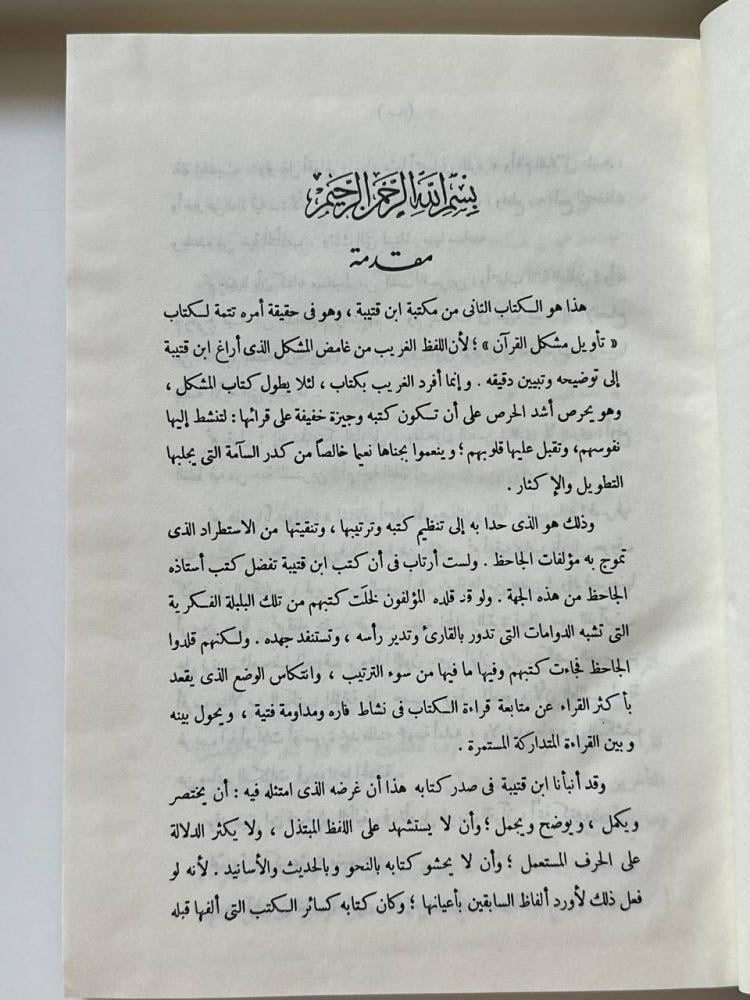 بسم الله الرحمن الرحيم
مقدمة
هذا هو الكتاب الثانى من مكتبة ابن قتيبة ، وهو فى حقيقة أمره تتمة لكتاب
« تأويل مشكل القرآن » ؛ لأن اللفظ الغريب من غامض المشكل الذى أراغ ابن قتيبة
إلى توضيحه وتبيين دقيقه . وإنما أفرد الغريب بكتاب ، لئلا يطول كتاب المشكل ،
وهو يحرص أشد الحرص على أن تكون كتبه وجيزة خفيفة على قرائها : لتنشط إليها
نفوسهم، وتقبل عليها قلوبهم ؛ وينعموا بجناها نعيما خالصاً من كدر السآمة التى يجلبها
التطويل والإكثار .
وذلك هو الذى حدا به إلى تنظيم كتبه وترتيبها ، وتنقيتها من الاستطراد الذى
تموج به مؤلفات الجاحظ . ولست أرتاب فى أن كتب ابن قتيبة تفضل كتب أستاذه
الجاحظ من هذه الجهة . ولو قد قلده المؤلفون لخلَت كتبهم من تلك البلبلة الفكرية
التى تشبه الدوامات التى تدور بالقارئ وتدير رأسه ، وتستنفد جهده . ولكنهم قلدوا
الجاحظ فجاءت كتبهم وفيها ما فيها من سوء الترتيب ، وانتكاس الوضع الذى يقعد
بأكثر القراء عن متابعة قراءة الكتاب فى نشاط فاره ومداومة فتية ، ويحول بينه
وبين القراءة المتداركة المستمرة .
وقد أنبأنا ابن قتيبة فى صدر كتابه هذا أن غرضه الذى امتثله فيه : أن يختصر
ويكمل ، ويوضح ويجمل ؛ وأن لا يستشهد على اللفظ المبتذل ، ولا يكثر الدلالة
على الحرف المستعمل ؛ وأن لا يحشو كتابه بالنحو وبالحديث والأسانيد . لأنه لو
فعل ذلك لأورد ألفاظ السابقين بأعيانها ؛ وكان كتابه كسائر الكتب التى ألفها قبله